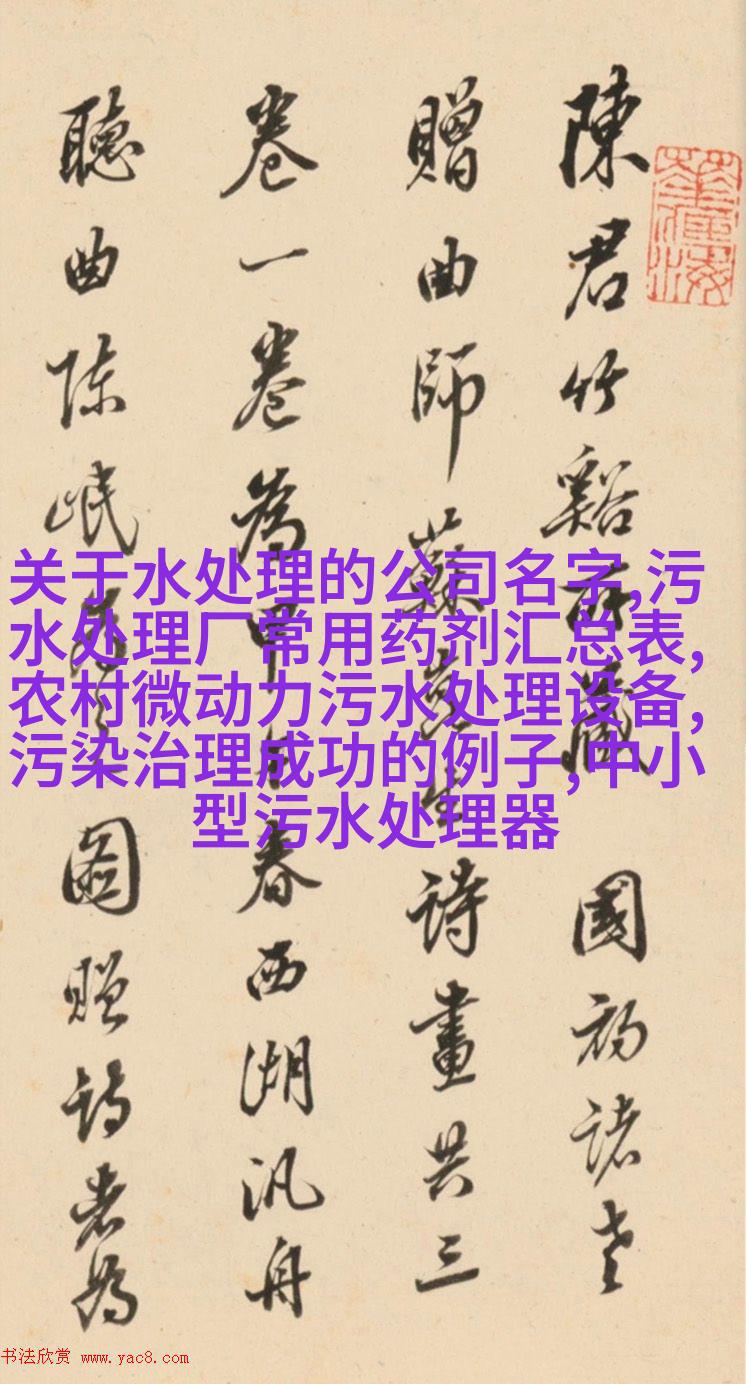 陳君竹谿所藏 國初諸老
贈曲師蘇崑生詩畫共三
卷一卷為甲春西湖汎舟
聽曲陳岷圖贈詩者為
关于水处理的公司名字,污
水处理厂常用药剂汇总表,
农村微动力污水处理设备,
污染治理成功的例子,中小
型污水处理器
书法欣赏 www.yac8.com